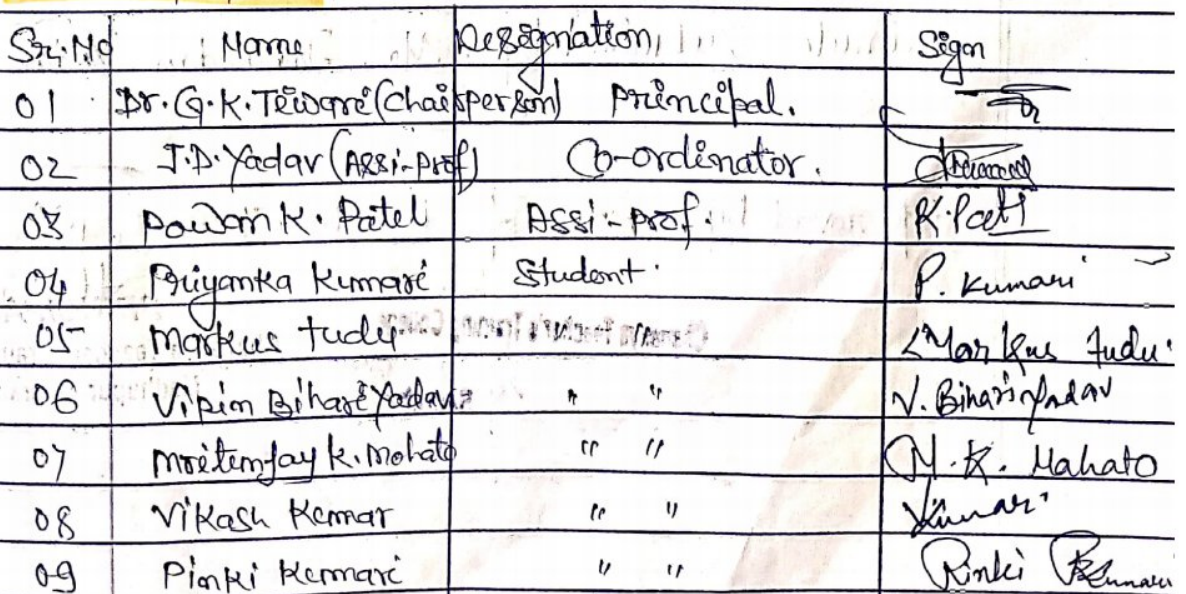 Sr. No Name Designation Sign
01 Dr. G. K. Tiwari (Chairperson) Principal.
02 J.D. Yadav (Assi-Prof) Co-ordinator.
03 Pawan K. Patel Assi-Prof. K. Patel
04 Priyanka Kumari Student. P. Kumari
05 Markus tudu Markus tudu
06 Vipin Bihari Yadav " " V. Bihari Yadav
07 Mritunjay K. Mohato " " M. K. Mahato
08 Vikash Kumar " " Kumar
09 Pinki Kumari " " Pinki Kumari